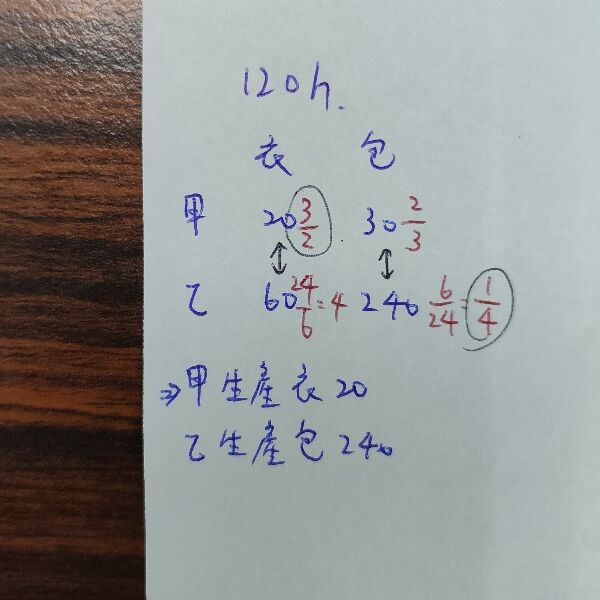 120h.
衣 包
甲 20 3/2 30 2/3
↕ ↕
乙 60 24/6=4 240 6/24=1/4
⇒甲生產衣20
乙生產包240